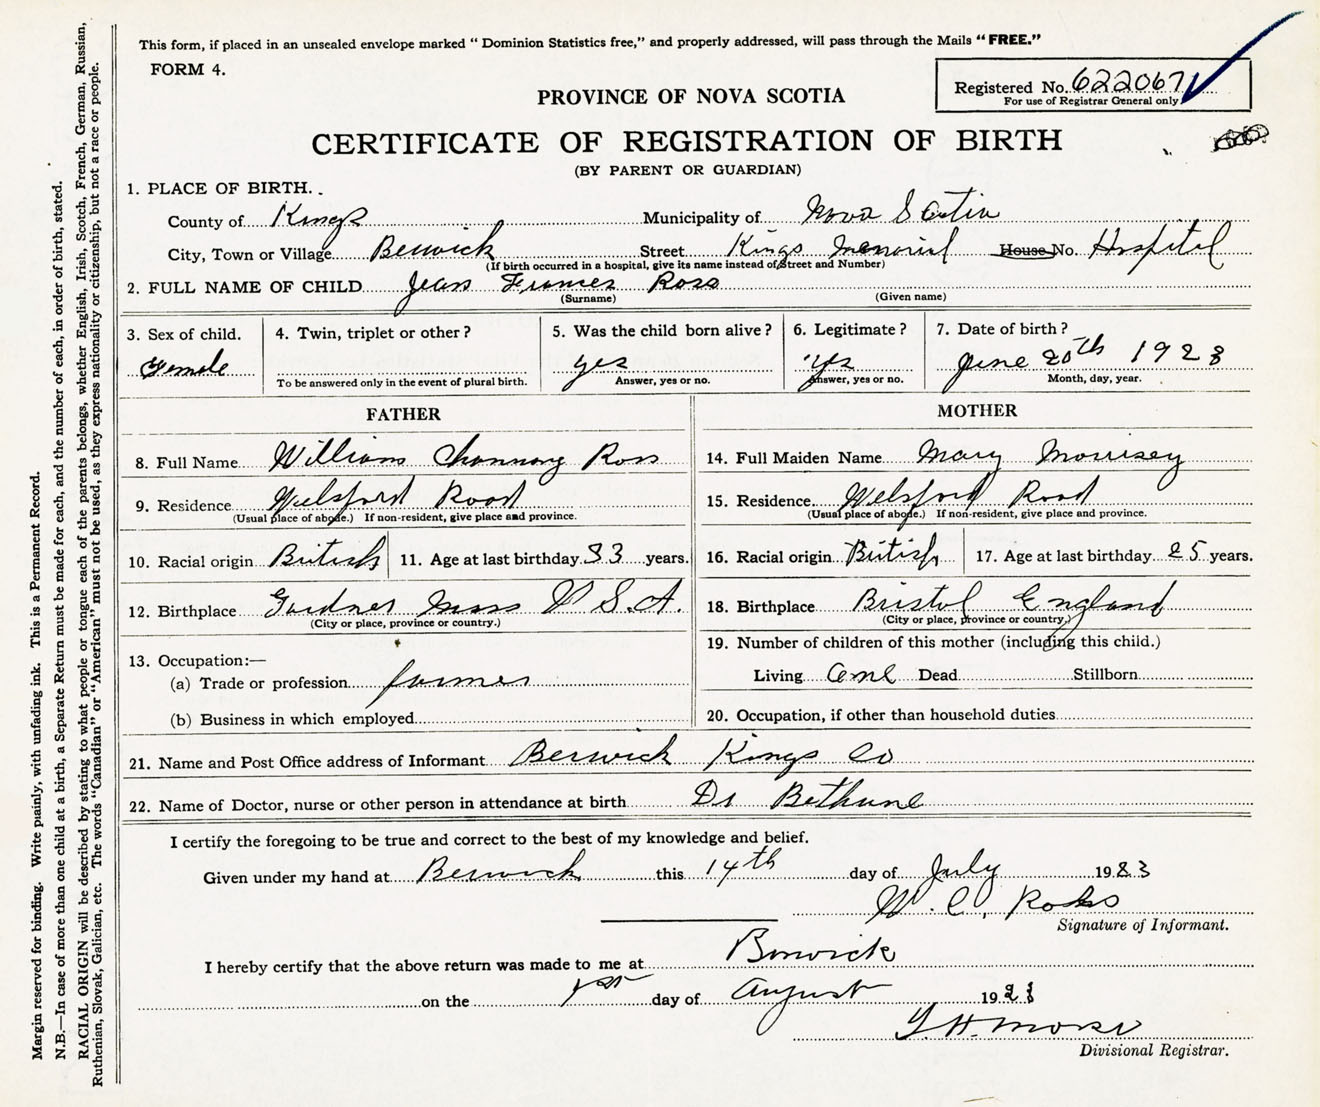 This form, if placed in an unsealed envelope marked “ Dominion Statistics free,” and properly addressed, will pass through the Mails “FREE.”
FORM 4.
Registered No. 622067
For use of Registrar General only
PROVINCE OF NOVA SCOTIA
CERTIFICATE OF REGISTRATION OF BIRTH
(BY PARENT OR GUARDIAN)
1. PLACE OF BIRTH.
County of Kings Municipality of Nova Scotia
City, Town or Village Berwick Street Kings Memorial House No. Hospital
(If birth occurred in a hospital, give its name instead of Street and Number)
2. FULL NAME OF CHILD Jean Frances Ross
(Surname) (Given name)
3. Sex of child. 4. Twin, triplet or other? 5. Was the child born alive? 6. Legitimate? 7. Date of birth?
Female yes yes June 20th 1923
To be answered only in the event of plural birth. Answer, yes or no. Answer, yes or no. Month, day, year.
FATHER MOTHER
8. Full Name William Channing Ross 14. Full Maiden Name Mary Morrisey
9. Residence Welsford Road 15. Residence Welsford Road
(Usual place of abode.) If non-resident, give place and province. (Usual place of abode.) If non-resident, give place and province.
10. Racial origin British 11. Age at last birthday 33 years. 16. Racial origin British 17. Age at last birthday 25 years.
12. Birthplace Gardner Mass U S.A. 18. Birthplace Bristol England
(City or place, province or country.) (City or place, province or country.)
13. Occupation:— 19. Number of children of this mother (including this child.)
(a) Trade or profession farmer Living One Dead Stillborn
(b) Business in which employed 20. Occupation, if other than household duties
21. Name and Post Office address of Informant Berwick Kings Co
22. Name of Doctor, nurse or other person in attendance at birth Dr Bethune
I certify the foregoing to be true and correct to the best of my knowledge and belief.
Given under my hand at Berwick this 14th day of July 1923
W. C. Ross
Signature of Informant.
I hereby certify that the above return was made to me at Berwick
on the 1st day of August 192
Y. H. Morse
Divisional Registrar.
Margin reserved for binding. Write plainly, with unfading ink. This is a Permanent Record.
N.B.—In case of more than one child at a birth, a Separate Return must be made for each, and the number of each, in order of birth, stated.
RACIAL ORIGIN will be described by stating to what people or tongue each of the parents belongs, whether English, Irish, Scotch, French, German, Russian,
Ruthenian, Slovak, Galician, etc. The words “Canadian” or “American” must not be used, as they express nationality or citizenship, but not a race or people.